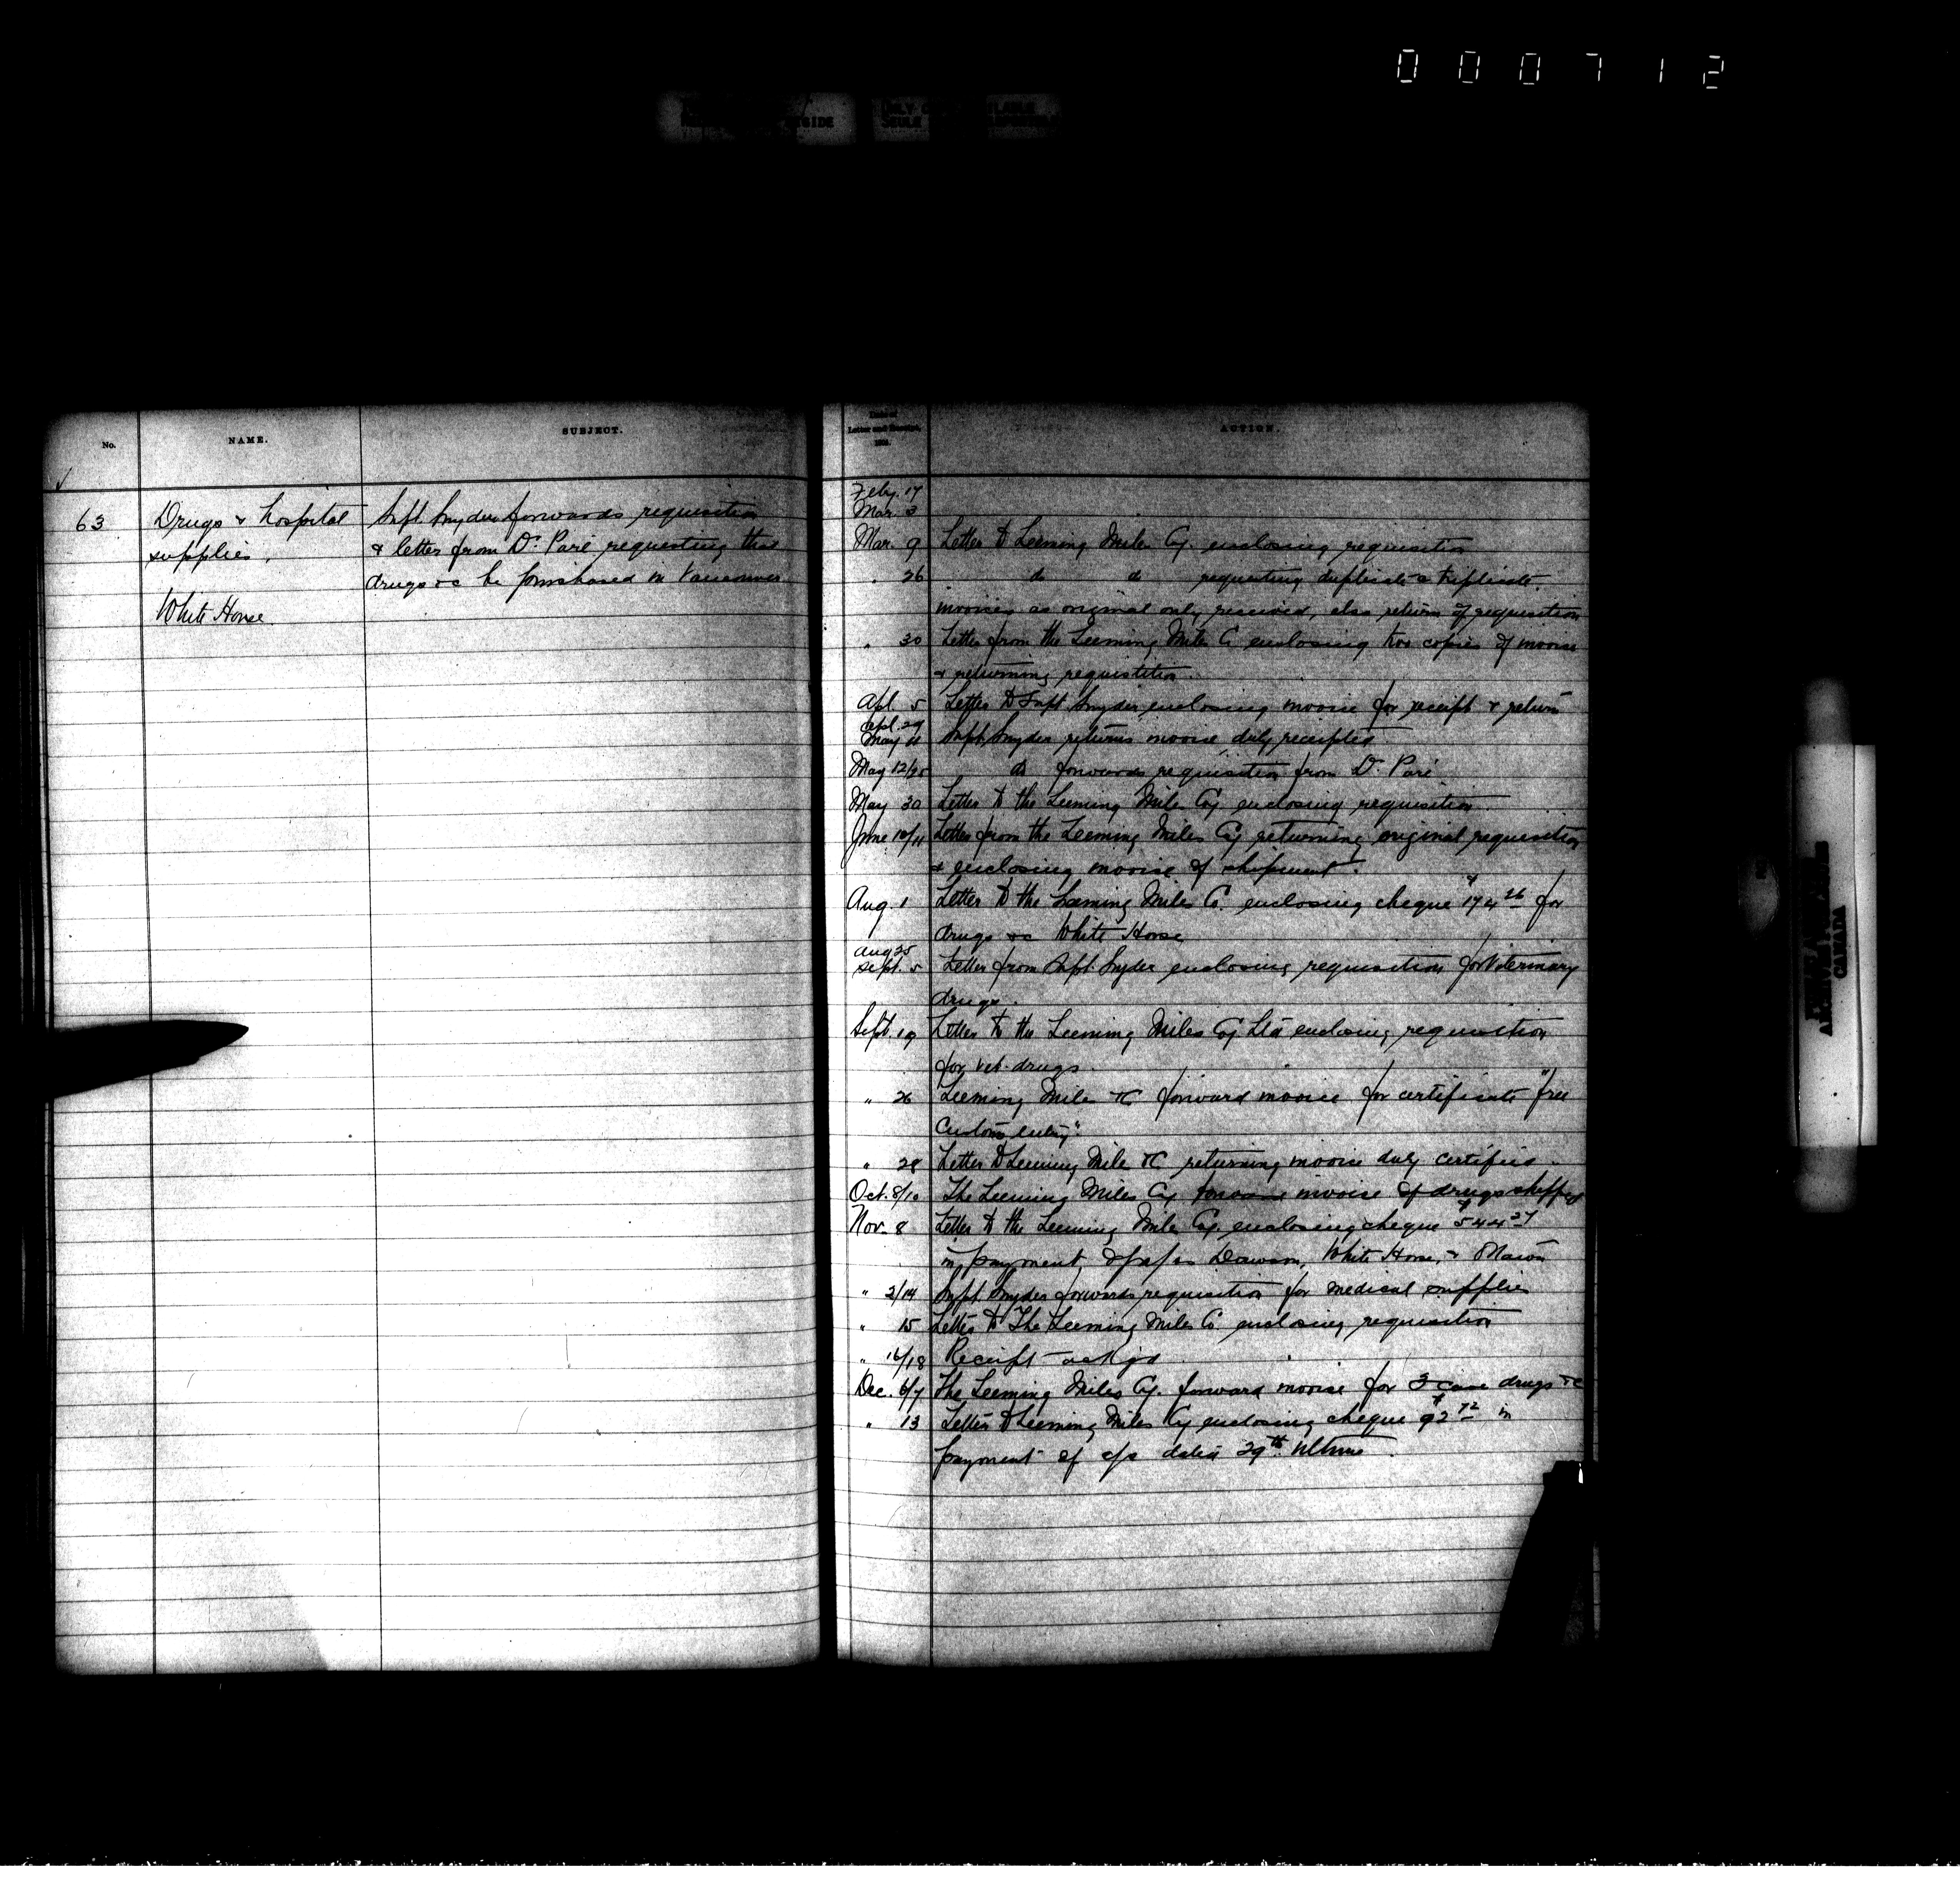 000712
No.
NAME.
SUBJECT.
63
Drugs & hospital
supplies.
White Horse.
Supt. Snyder forwards requisition
& letter from Dr. Paré requesting that
drugs &c be purchased in Vancouver
Date of
Letter and Receipt,
ACTION.
Feby. 17
Mar. 3
Mar. 9 Letter to Leeming Miles Cy. enclosing requisition
" 26 do do requesting duplicate & triplicate
invoices as original only received, also return of requisition
" 30 Letter from the Leeming Miles Co enclosing two copies of invoice
& returning requisition.
Apl. 5 Letter to Supt. Snyder enclosing invoice for receipt & return
Apl. 29
May 11 Supt. Snyder returns invoice duly receipted
May 12/25 do forwards requisition from Dr. Paré
May 30 Letter to the Leeming Miles Coy enclosing requisition
June 10/11 Letter from the Leeming Miles Cy returning original requisition
& enclosing invoice of shipment.
Aug. 1 Letter to the Leeming Miles Co. enclosing cheque $174 26 for
drugs &c White Horse
Aug 25
Sept. 5 Letter from Supt. Snyder enclosing requisition for Veterinary
drugs.
Sept. 19 Letter to the Leeming Miles Coy Ltd enclosing requisition
for vet. drugs.
" 26 Leeming Miles &C forward invoice for certificate "free
Customs entry".
" 28 Letter to Leeming Miles &C returning invoice duly certified.
Oct. 8/10 The Leeming Miles Cy forward invoice of drugs shipped
Nov. 8 Letter to the Leeming Miles Cy. enclosing cheque $544 27
in payment of a/cs Dawson, White Horse, &
" 2/14 Supt. Snyder forwards requisition for medical supplies
" 15 Letter to The Leeming Miles Co enclosing requisition
" 16/18 Receipt ackgd
Dec. 6/7 The Leeming Miles Cy. forward invoice for 3 case drugs &c
" 13 Letter to Leeming Miles Cy enclosing cheque $92 72 in
payment of a/c dated 29th Ultimo.
CANADA